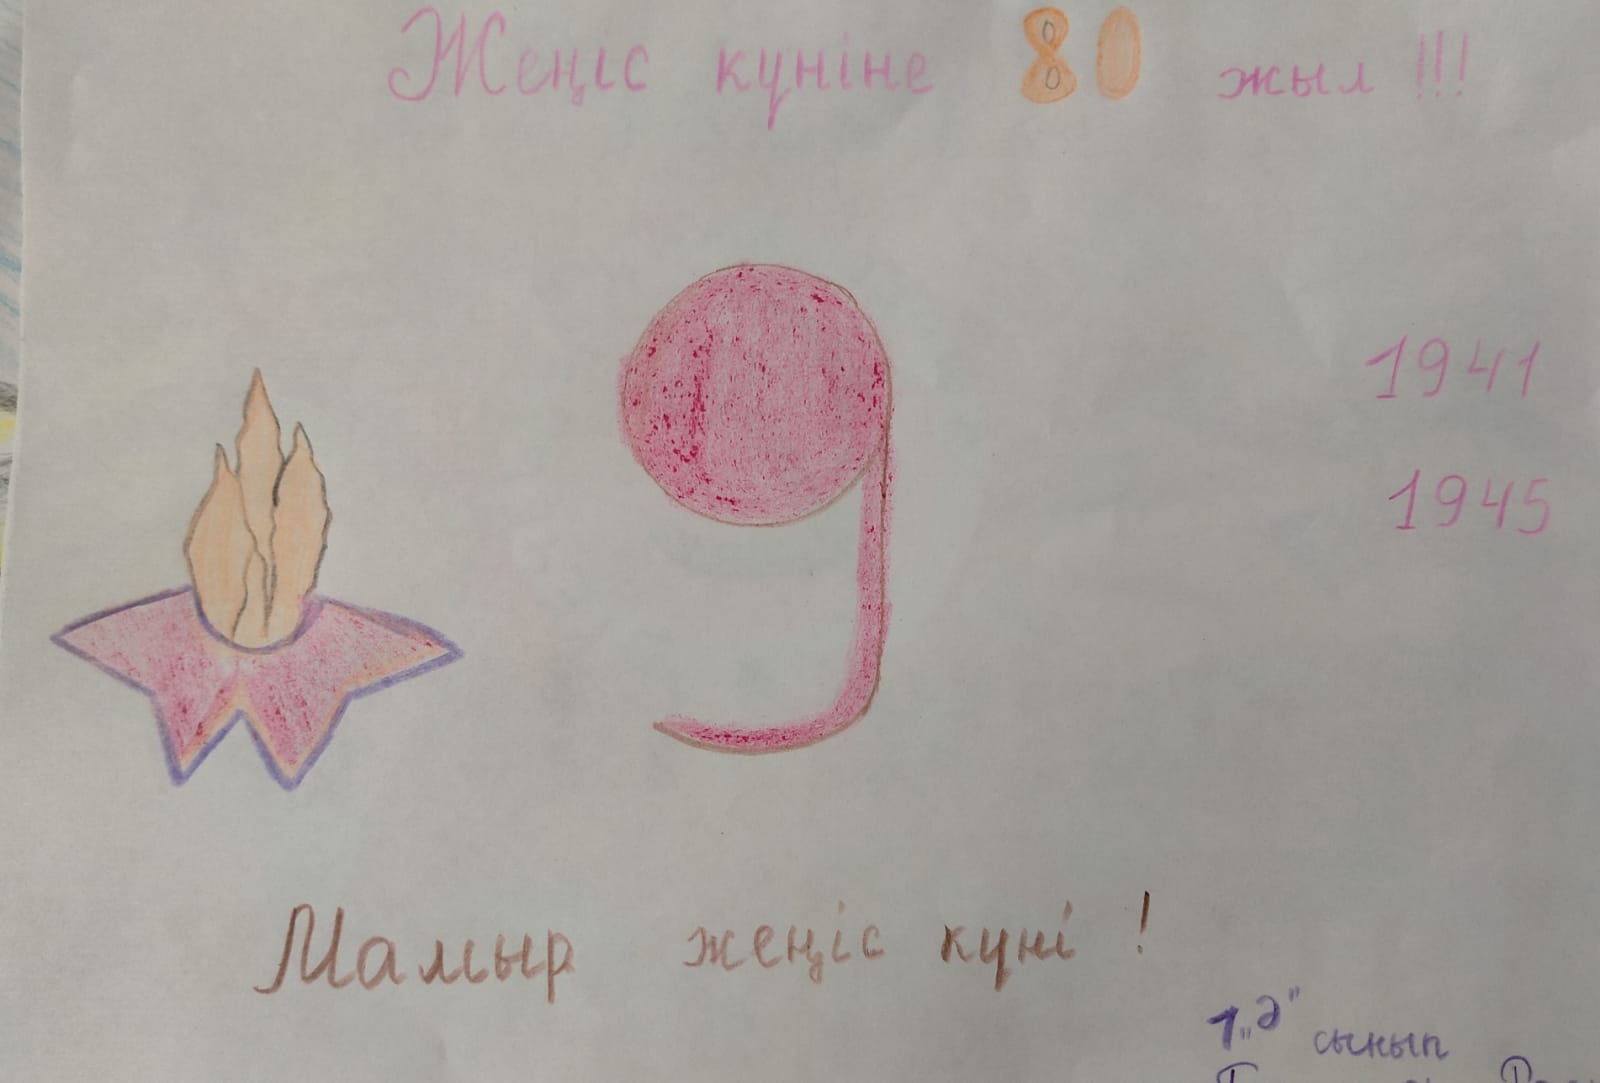 Жеңіс күніне 80 жыл !!!
9
1941
1945
Мамыр жеңіс күні !
1 „Ә" сынып